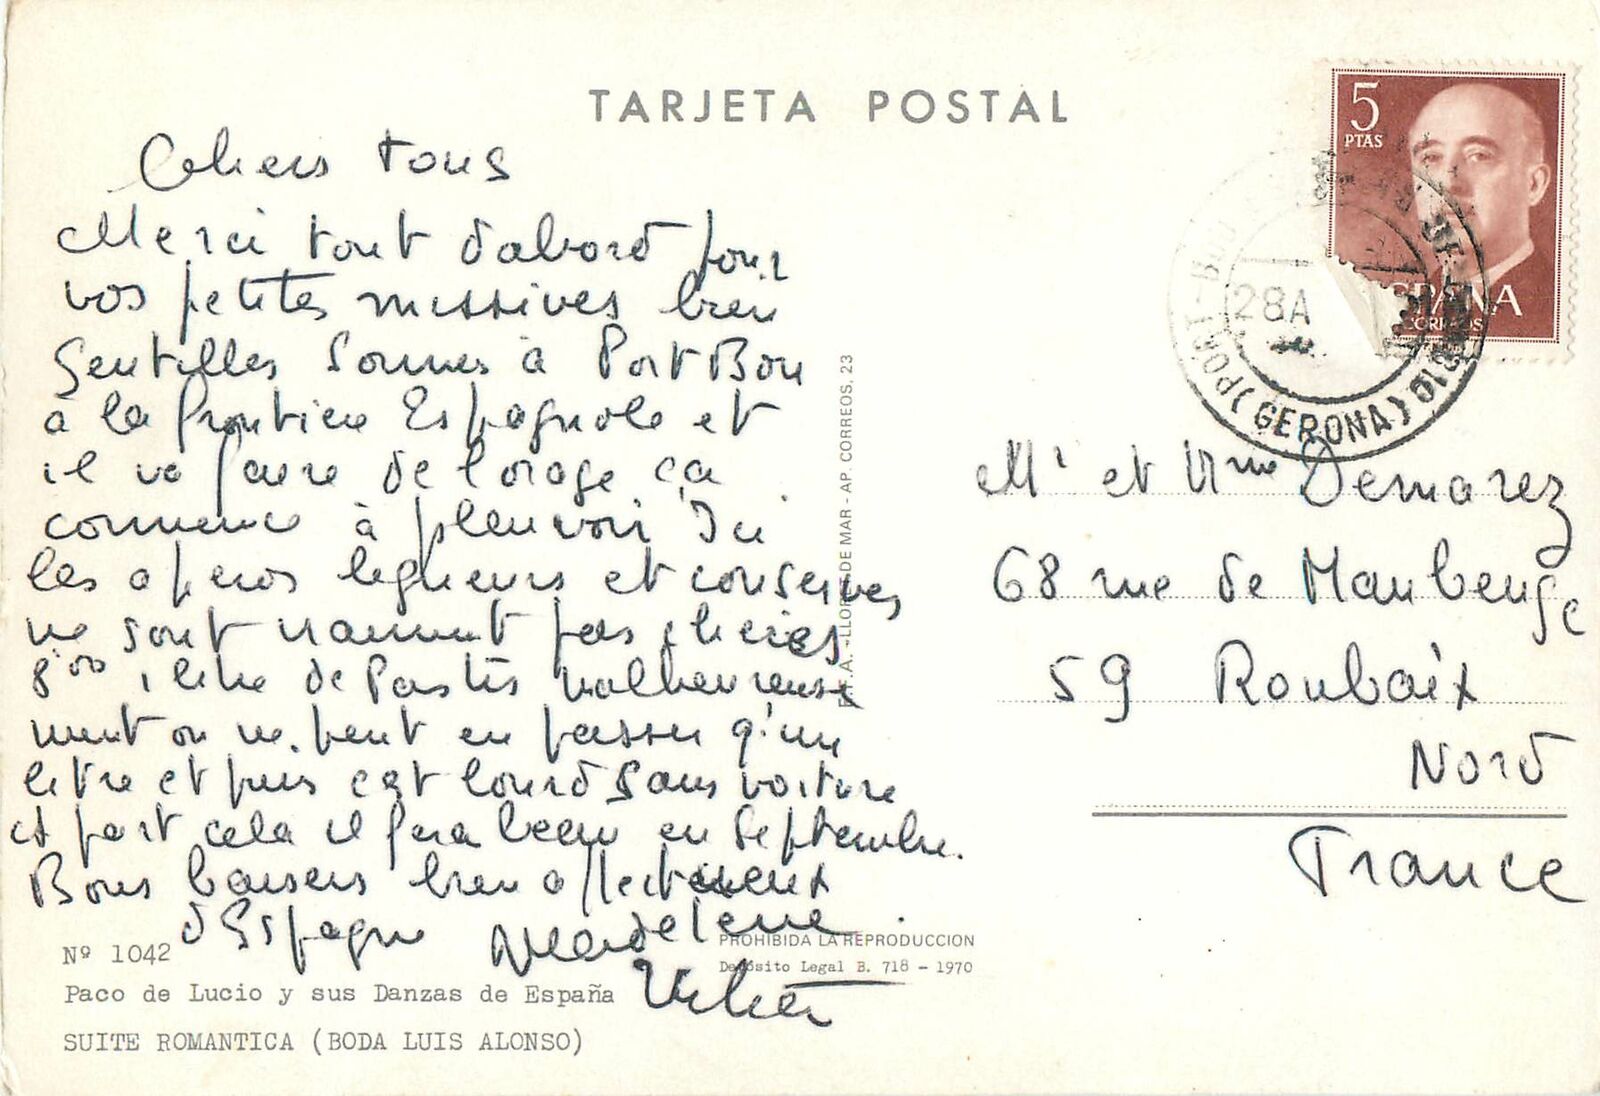 TARJETA POSTAL
5
PTAS
ESPAÑA
CORREOS
PORT-BOU
28A
(GERONA)
Chers tous
Merci tout d'abord pour
vos petites missives bien
Gentilles Sommes à Port Bou
à la frontière Espagnole et
il va faire de l'orage ça
commence à pleuvoir Ici
les aperos liqueurs et conserves
ne sont vraiment pas chères
8 00 1 litre de Pastis malheureuse
ment on ne peut en passer q'un
litre et puis c'est lourd sans voiture
à part cela il fera beau en Septembre.
Bons baisers bien affectueux
d'Espagne Madeleine
Mr et Mme Demarez
68 rue de Maubeuge
59 Roubaix
Nord
France
LLORET DE MAR - AP. CORREOS, 23
PROHIBIDA LA REPRODUCCION
Depósito Legal B. 718 - 1970
Nº 1042
Paco de Lucio y sus Danzas de España
SUITE ROMANTICA (BODA LUIS ALONSO)